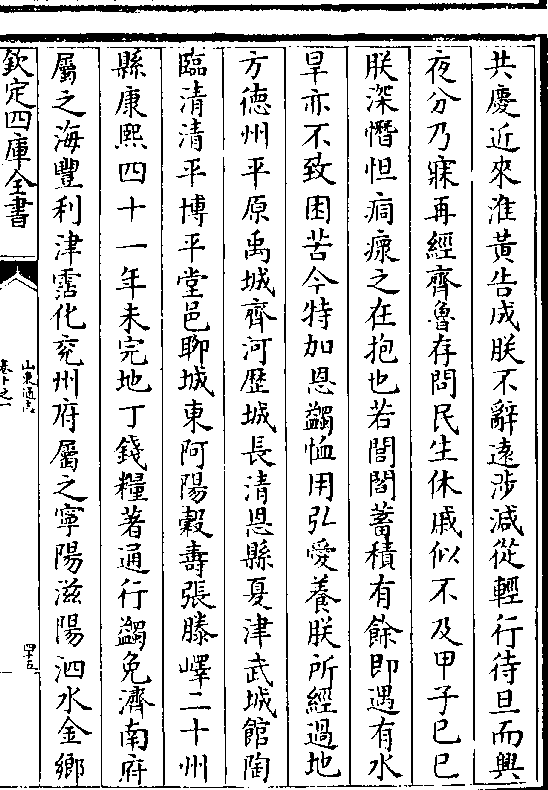 共慶近來淮黃告成朕不辭遠涉減從輕行待旦而興
夜分乃寐再經齊魯存問民生休戚似不及甲子己巳
朕深憯怛痌瘝之在抱也若閭閻蓄積有餘即遇有水
旱亦不致困苦今特加恩蠲恤用弘愛養朕所經過地
方德州平原禹城齊河歷城長清恩縣夏津武城館陶
臨清清平博平堂邑聊城東阿陽穀壽張滕嶧二十州
縣康熙四十一年未完地丁錢糧著通行蠲免濟南府
屬之海豐利津霑化兖州府屬之寧陽滋陽泗水金鄉
欽定四庫全書
山東通志
卷十之一